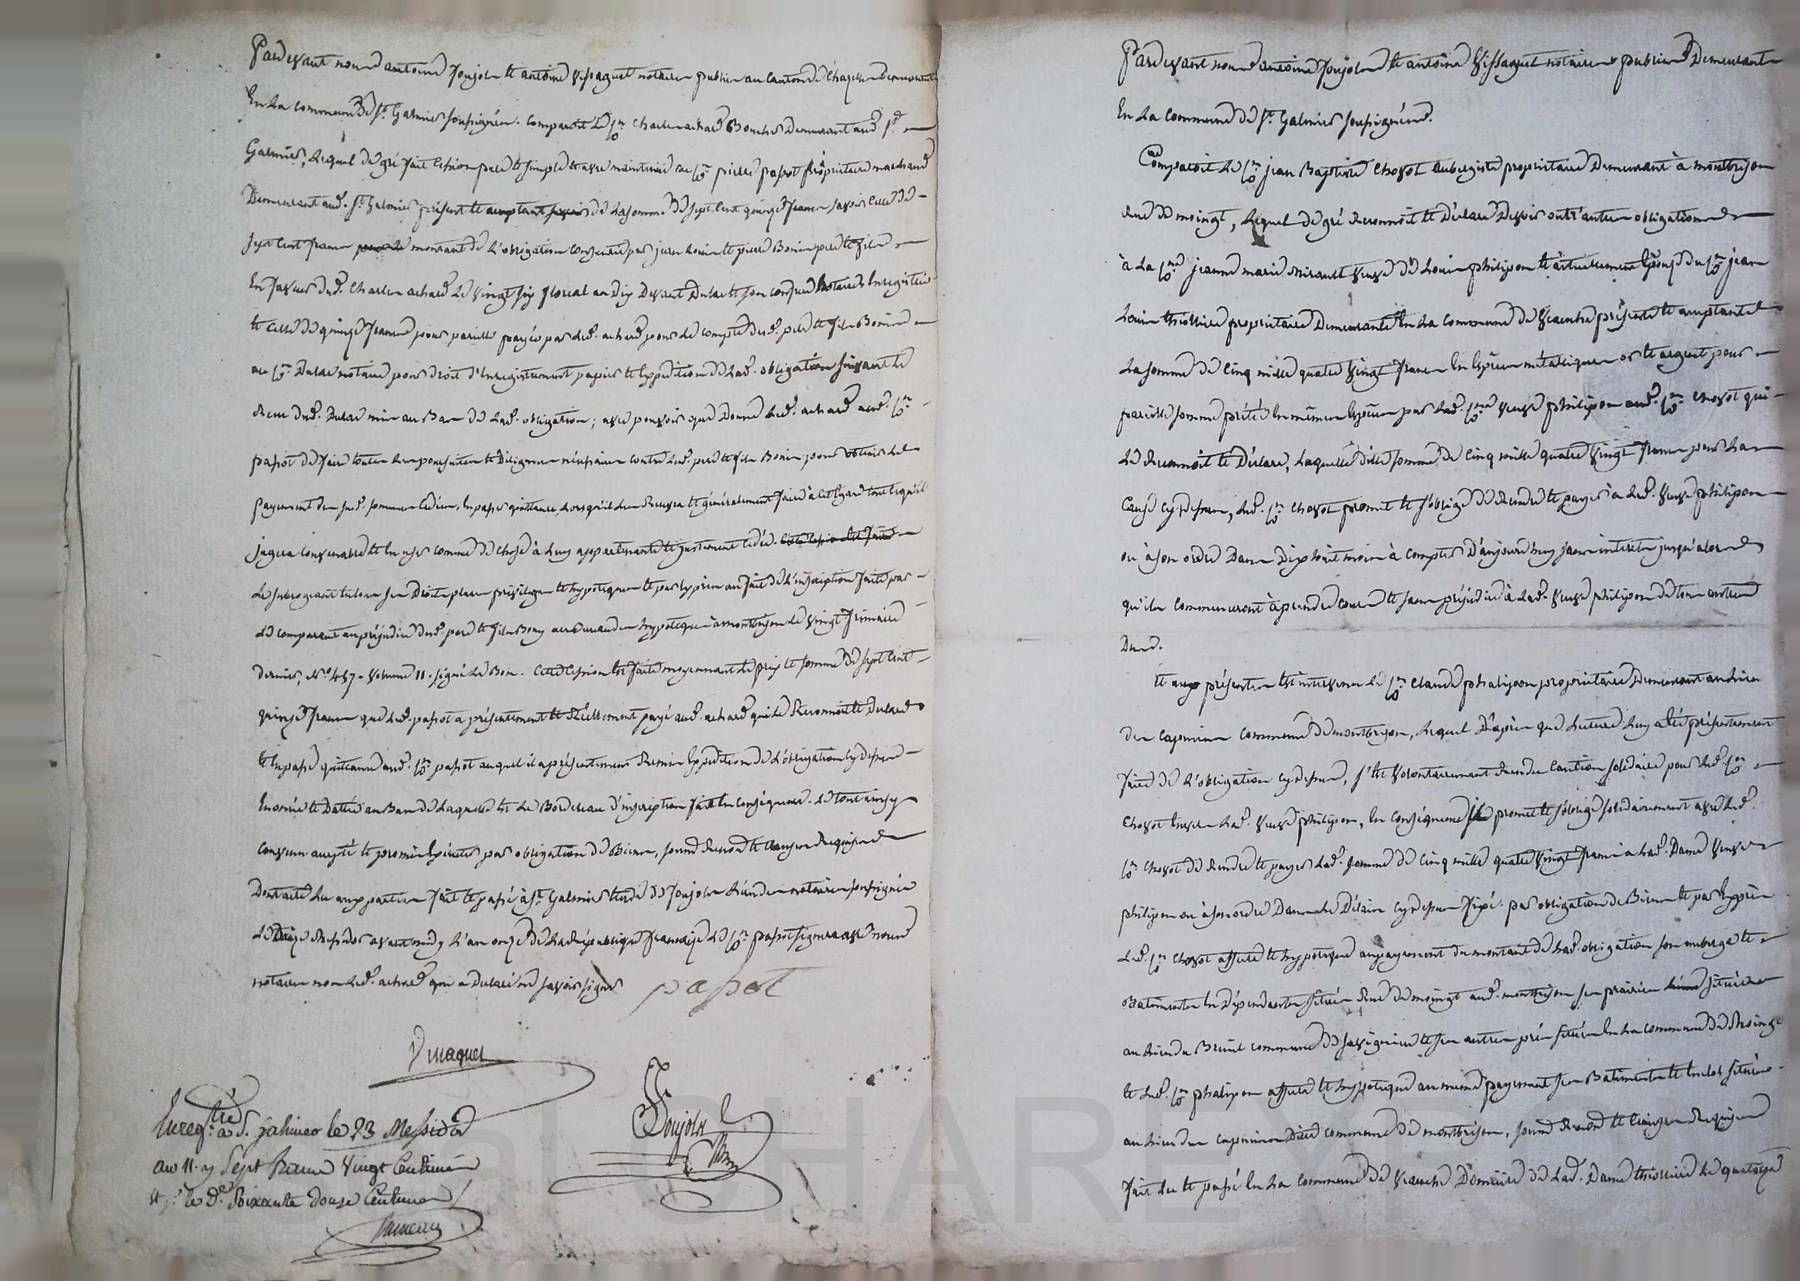 Pardevant nous antoine Joujole et antoine Vissaguet notaires publics au canton de Chazelles Demeurants
En la commune de St. Galmier soussignés. Comparoit Le Cn. Charles achard Boucher Demeurant aud. St.
Galmier, Lequel de gré fait Cession pure et simple avec maintenue au Cn. pierre passot propriétaire marchand
Demeurant aud. St. Galmier présent et acceptant de La somme de sept Cent quinze francs savoir Celle de
sept Cent francs montant de L'obligation Consentie par jean Louis et pierre Bonin père et fils
En faveur dud. Charles achard Le vingt six floreal an Dix Devant Dulac et son confrere Notaires Enregistrée
et Celle de quinze francs pour pareille payée par led. achard pour Le compte dud. père et fils Bonin
au Cn. Dulac notaire pour droit d'Enregistrement papier et Expédition de Lad. obligation suivant Le
Recu dud. Dulac mis au Bas de Lad. obligation; avec pouvoir que Donne Led. achard aud. Cn.
passot de faire toutes Les poursuites et Diligences nécessaires contre Lesd. père et fils Bonin pour obtenir Le
payement des susd. sommes Cédées, En passer quittance, Lorsqu'il Les Recevra et généralement faire à Cet Egard tout Ce qu'il
jugera Convenable et En user comme de chose à Luy appartenante et justement Cédée.
Le subrogeant En tous ses Droits places privileges et hypoteques et par Exprès au fait de L'inscription faite par
Le comparant au préjudice dud. père et fils Bonin au Bureau des hypoteques à montbrison Le vingt frimaire
dernier, No. 487. volume 11. signé Le Bon. Cette Cession Est faite moyennant Le prix et somme de sept Cent
quinze francs que Led. passot a présentement et Réellement payé aud. achard qui Le Reconnoit et Déclare
et En passe quittance aud. Cn. passot auquel il a présentement Remis Expédition de L'obligation Cy dessus
Enoncée et Dattée au Bas de Laquelle Est Le Bordereau d'inscription fait En Conséquence. Le tout ainsy
Convenu accepté et promis Exécuter par obligation de Biens, soumis Renoncé et Clauses Requises
Dont acte Lu aux parties fait et passé à St. Galmier Etude de Joujole L'un des notaires soussignés
Le Onze Messidor avant midy L'an onze de La République française Le Cn. passot signera avec nous
notaires non Led. achard qui a Declaré ne savoir signer
passot
Vissaguet
Joujole
Nre
Enregtré à St. Galmier le 23 Messidor
an 11. Sept francs vingt Centimes
et pr. le De. Soixante douze Centimes
Pardevant nous antoine Joujole et antoine Vissaguet notaires publics Demeurants
En La Commune de St. Galmier soussignés.
Comparoit Le Cn. jean Baptiste Chovot aubergiste propriétaire Demeurant à montbrison
Rue de moingt, Lequel de gré Reconnoit et Déclare Devoir outre autres obligations
à La Cne. jeanne marie Mirault veuve de Louis philipon et actuellement Epouse du Cn. jean
Louis thiolliere propriétaire Demeurante En La Commune de Veauche présente et acceptante
La somme de Cinq mille quatre vingt francs En Espèces métalliques or et argent pour
pareille somme prêtée En mêmes Espèces par Lad. Cne. veuve philipon aud. Cn. Chovot qui
Le Reconnoit et Déclare, Laquelle dite somme de Cinq mille quatre vingt francs pour Les
Causes Cy dessus, Led. Cn. Chovot promet et s'oblige de Rendre et payer à Lad. veuve philipon
ou à son ordre Dans Dix huit mois à compter d'aujourd'huy sans intérêts jusqu'alors
qu'ils Commenceront à prendre cours et sans préjudice à Lad. veuve philipon de tous autres
Dus.
Et aux présentes Est intervenu Le Cn. Claude phalipon propriétaire Demeurant au Lieu
des Capucins Commune de montbrison, Lequel D'après que Lecture Luy a été présentement
faite de L'obligation Cy dessus, s'est volontairement Rendu Caution solidaire pour Led. Cn.
Chovot Envers Lad. veuve philipon, En Conséquence il promet et s'oblige solidairement avec Led.
Cn. Chovot de Rendre et payer Lad. somme de Cinq mille quatre vingt francs à Lad. Dame veuve
philipon ou à son ordre Dans Le Délai Cy dessus fixé. par obligation de Biens et par Exprès
Led. Cn. Chovot affecte et hypoteque au payement du montant de Lad. obligation son auberge et
Batiments En Dépendants situés Rue de moingt aud. montbrison ses prairies situées
au Lieu du Breuil commune de savigneux et ses autres prés situés En La commune de Moingt
et Led. Cn. phalipon affecte et hypoteque au meme payement ses Batiments et Enclos situés
au Lieu des Capucins Dite commune de montbrison, soumis Renoncé et Clauses Requises
fait Lu et passé En La Commune de Veauche Domicile de Lad. Dame thiolliere Le quatorze